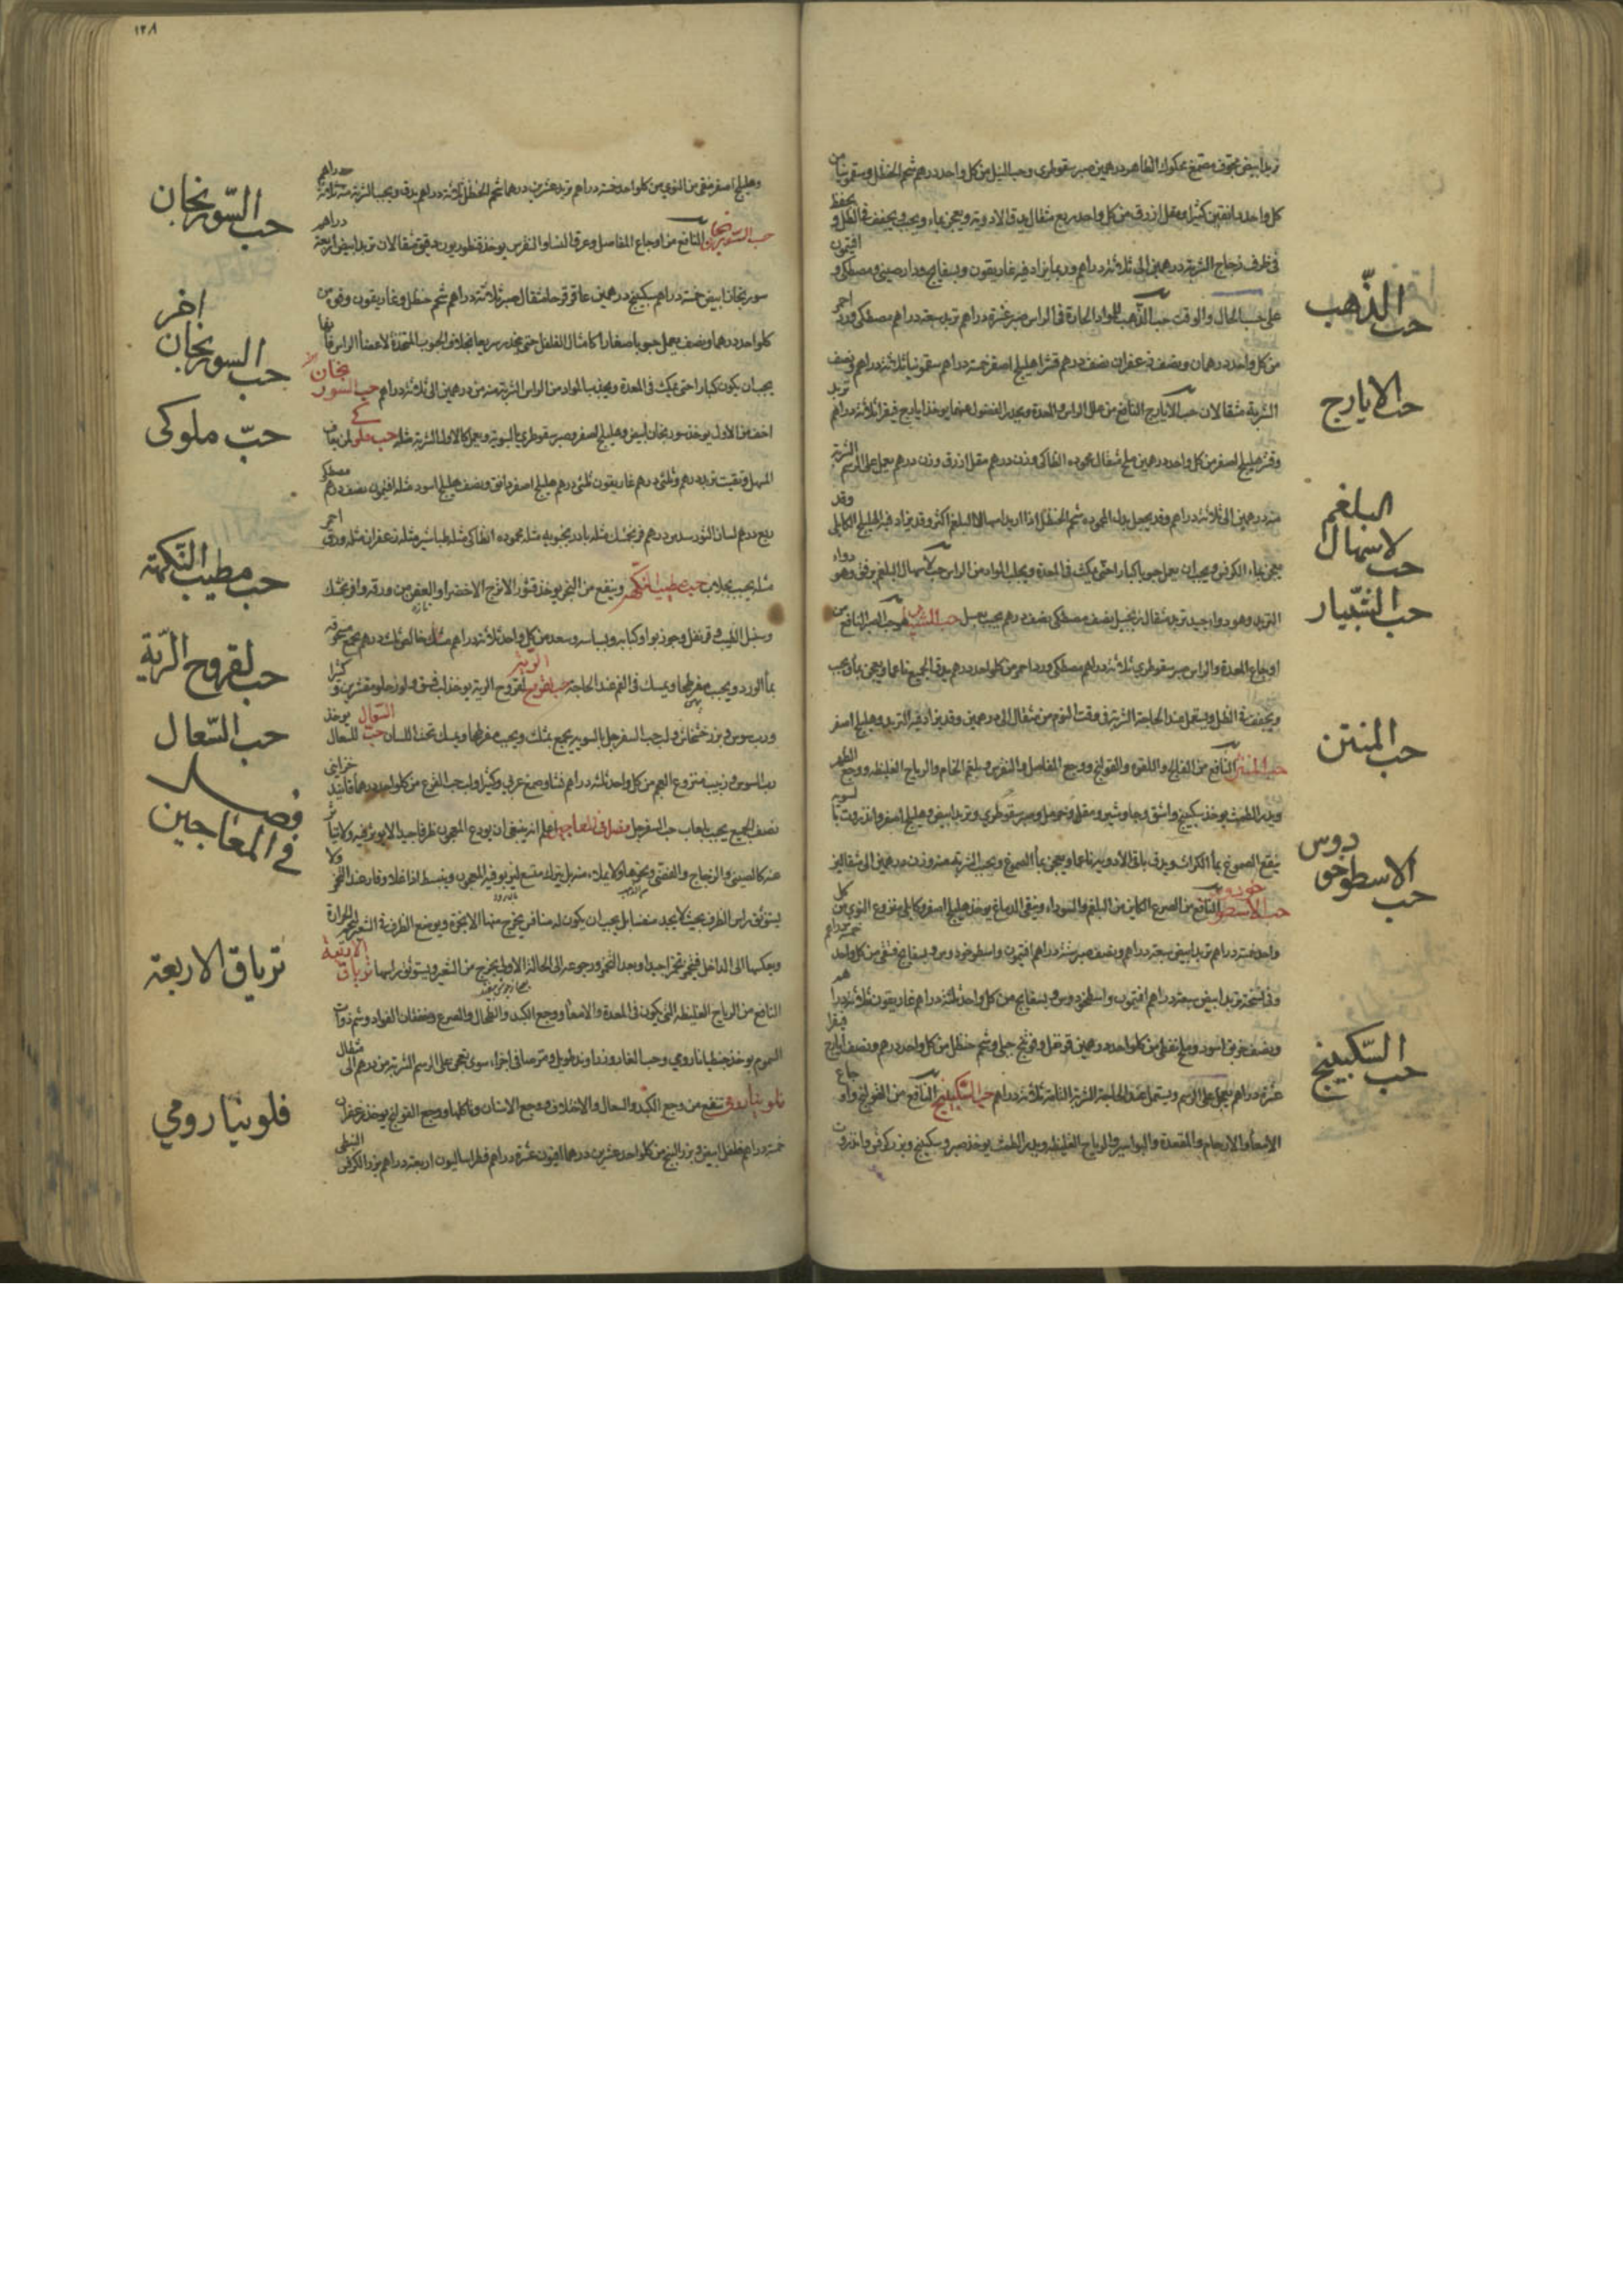 تربد ابيض مجوف مصمغ محكوك الظاهر درهمين صبر سقوطرى وحب النيل من كل واحد درهم شحم الحنظل وسقمونيا من
كل واحد دانقين كثيرا ومقل ازرق من كل واحد ربع مثقال يدق الادوية ويعجن بماء ويحبب ويجفف فى الظل و يحفظ
فى ظرف زجاج الشربة درهمين الى ثلاثة دراهم وربما يزاد فيه غاريقون وبسفايج ودارصينى ومصطكى و افتيمون
على حسب الحال والوقت حب الذهب للمواد الحادة فى الراس صبر عشرة دراهم تربد سبعة دراهم مصطكى ورد احمر
من كل واحد درهمان ونصف زعفران نصف درهم قشر اهليلج اصفر خمسة دراهم سقمونيا ثلاثة دراهم ونصف
الشربة مثقالان حب الايارج النافع من علل الراس والمعدة ويحدر الفضول عنهما يوخذ ايارج فيقرا ثلاثة دراهم تربد
وقشر هليلج اصفر من كل واحد درهمين ملح مثقال محموده انطاكى وزن درهم مقل ازرق وزن درهم يعمل على الرسم الشربة
منه درهمين الى ثلاثة دراهم وقد يجعل بدل المحموده شحم الحنظل اذا اريد اسهال البلغم اكثر وقد يزاد فيه الهليلج الكابلى وقد
يعجن بماء الكرفس ويجب ان يعمل حبوبا كبارا حتى يمكث فى المعدة ويجلب المواد من الراس حب لاسهال البلغم برفق وهو دواء
التربد وهو دواء جيد تربد مثقال زنجبيل نصف مصطكى نصف درهم يحبب بعسل حب الشبيار هو حب الصبر النافع من
اوجاع المعدة والراس صبر سقوطرى ثلاثة دراهم مصطكى ورد احمر من كل واحد درهم يدق الجميع ناعما ويعجن بماء ويحبب
ويجفف فى الظل ويستعمل عند الحاجة الشربة فى وقت النوم من مثقال الى درهمين وقد يزاد فيه التربد وهليلج اصفر
حب المنتن النافع من الفالج واللقوه والقولنج ووجع المفاصل والنقرس وبلغم الخام والرياح الغليظه ووجع الظهر
ويدر الطمث يوخذ سكبينج واشق وجاوشير ومقل وحرمل وصبر سقوطرى وتربد ابيض وهليلج اصفر وانزروت بالسويه
ينقع الصموغ بماء الكراث ويدق باقى الادوية ناعما ويعجن بماء الصموغ ويحبب الشربة منه وزن درهمين الى مثقالين
حب الاسطوخودوس النافع من الصرع الكاين من البلغم والسوداء وينقى الدماغ يوخذ هليلج اصفر وكابلى منزوع النوى من كل
واحد خمسة دراهم تربد ابيض سبعة دراهم ونصف صبر ستة دراهم افتيمون واسطوخودوس وبسفايج فستقى من كل واحد خمسة دراهم
وفى نسخة تربد ابيض سبعة دراهم افتيمون واسطوخودوس وبسفايج من كل واحد ثلثة دراهم غاريقون ثلاثة دراهم
ونصف خربق اسود وملح نفطى من كل واحد درهمين قرنفل وفوتنج جبلى وشحم حنظل من كل واحد درهم ونصف ايارج فيقرا
عشرة دراهم يعمل على الرسم ويستعمل عند الحاجة الشربة التامة ثلاثة دراهم حب السكبينج النافع من القولنج واوجاع
الامعاء والارحام والمقعدة والبواسير والرياح الغليظه ويدر الطمث يوخذ صبر وسكبينج وبزر كرفس وانزروت
حب الذّهب
حب الايارج
حب لاسهال البلغم
حب الشّبيار
حب المنتن
حب الاسطوخودوس
حب السّكبينج
١٢٨
وهليلج اصفر منقى من النوى من كل واحد خمسة دراهم تربد عشرين درهما شحم الحنظل ثلاثة دراهم يدق ويحبب الشربة منه ثلاثة دراهم
حب السورنجان النافع من اوجاع المفاصل وعرق النسا والنقرس يوخذ قنطوريون دقيق مثقالان تربد ابيض اربعة دراهم
سورنجان ابيض خمسة دراهم سكبينج درهمين عاقرقرحا مثقال صبر ثلاثة دراهم شحم حنظل وغاريقون من
كل واحد درهما ونصف يعمل حبوبا صغارا كامثال الفلفل حتى ينحدر سريعا بخلاف الحبوب المتخذة لاعضاء الراس فانها
يجب ان يكون كبارا حتى يمكث فى المعدة ويجذب المواد من الراس الشربة منه من درهمين الى ثلاثة دراهم حب السورنجان
اخف من الاول يوخذ سورنجان ابيض وهليلج اصفر وصبر سقوطرى بالسوية ويعمل كالاول الشربة مثله حب ملوكى لمن يعاف
المسهل وقيت تربد درهم وثلثى درهم غاريقون ثلثى درهم هليلج اصفر دانق ونصف هليلج اسود مثله افتيمون نصف درهم مصطكى
ربع درهم لسان الثور سدس درهم فرنجمشك مثله بادرنجبويه مثله محموده انطاكى مثله طباشير مثله زعفران مثله ورد احمر
مثله يحبب بجلاب حب مطيب النكهة وينفع من البخر يوخذ قشور الاترج الاخضر او الغض من ورقه وافرنجمشك
وسنبل الطيب وقرنفل وجوزبوا وكبابه وبسباسه وسعد من كل واحد ثلاثة دراهم مسك خالص ثلث درهم يجمع مسحوقه
بماء الورد ويحبب مفرطحا ويمسك فى الفم عند الحاجة حب لقروح الرية لقروح الرية يوخذ لب فستق ولوز حلو مقشرين وكثيرا
ورب سوس وبزر خشخاش ولب حب السفرجل بالسويه يجمع بمثلث ويحبب مفرطحا ويمسك تحت اللسان حب السعال للسعال يوخذ
رب السوس وزبيب منزوع العجم من كل واحد ثلثة دراهم نشا وصمغ عربى وكثيرا ولب حب القرع من كل واحد درهما فانيد خزاينى
نصف الجميع يحبب بلعاب حب السفرجل فصل فى المعاجين اعلم انه ينبغى ان يودع المعجون ظرفا جيدا لا يوثر فيه ولا يتأثر
عنه كالصينى والزجاج والفضى ونحوها ولا يملاء منه بل يترك متسع ليربو فيه المعجون وينبسط اذا غلا وفار عند التخمر ولا
ليستوثق براس الظرف بحيث لا يجد متنفسا بل يجب ان يكون له منافس يخرج منها الابخرة ويوضع الظرف فى الشعير
الى الداخل فيتخمر تخمرا جيدا وبعد التخمر ورجوعه الى الحالة الاولى يخرج من الشعير ويستوثق راسها ترياق الاربعة
النافع من الرياح الغليظه التى يكون فى المعدة والامعاء ووجع الكبد والطحال والصرع وخفقان الفواد وسم ذوات
السموم يوخذ جنطيانا رومي وحب الغار وزراوند طويل ومر صافى اجزاء سوى يعجن على الرسم الشربة من درهم الى مثقال
فلونيا رومى تنفع من وجع الكبد والسعال والاختلاف ووجع الاسنان وتاكلها ووجع القولنج يوخذ زعفران
خمسة دراهم فلفل ابيض وبزر البنج من كل واحد عشرين درهما افيون عشرة دراهم فطراساليون اربعة دراهم بزر الكرفس النبطى
حب السّورنجان
حب السورنجان اخر
حبّ ملوكى
حب مطيب النّكهة
حب لقروح الرّية
حب السّعال
فصل
فى المعاجين
ترياق الاربعة
فلونيا رومي